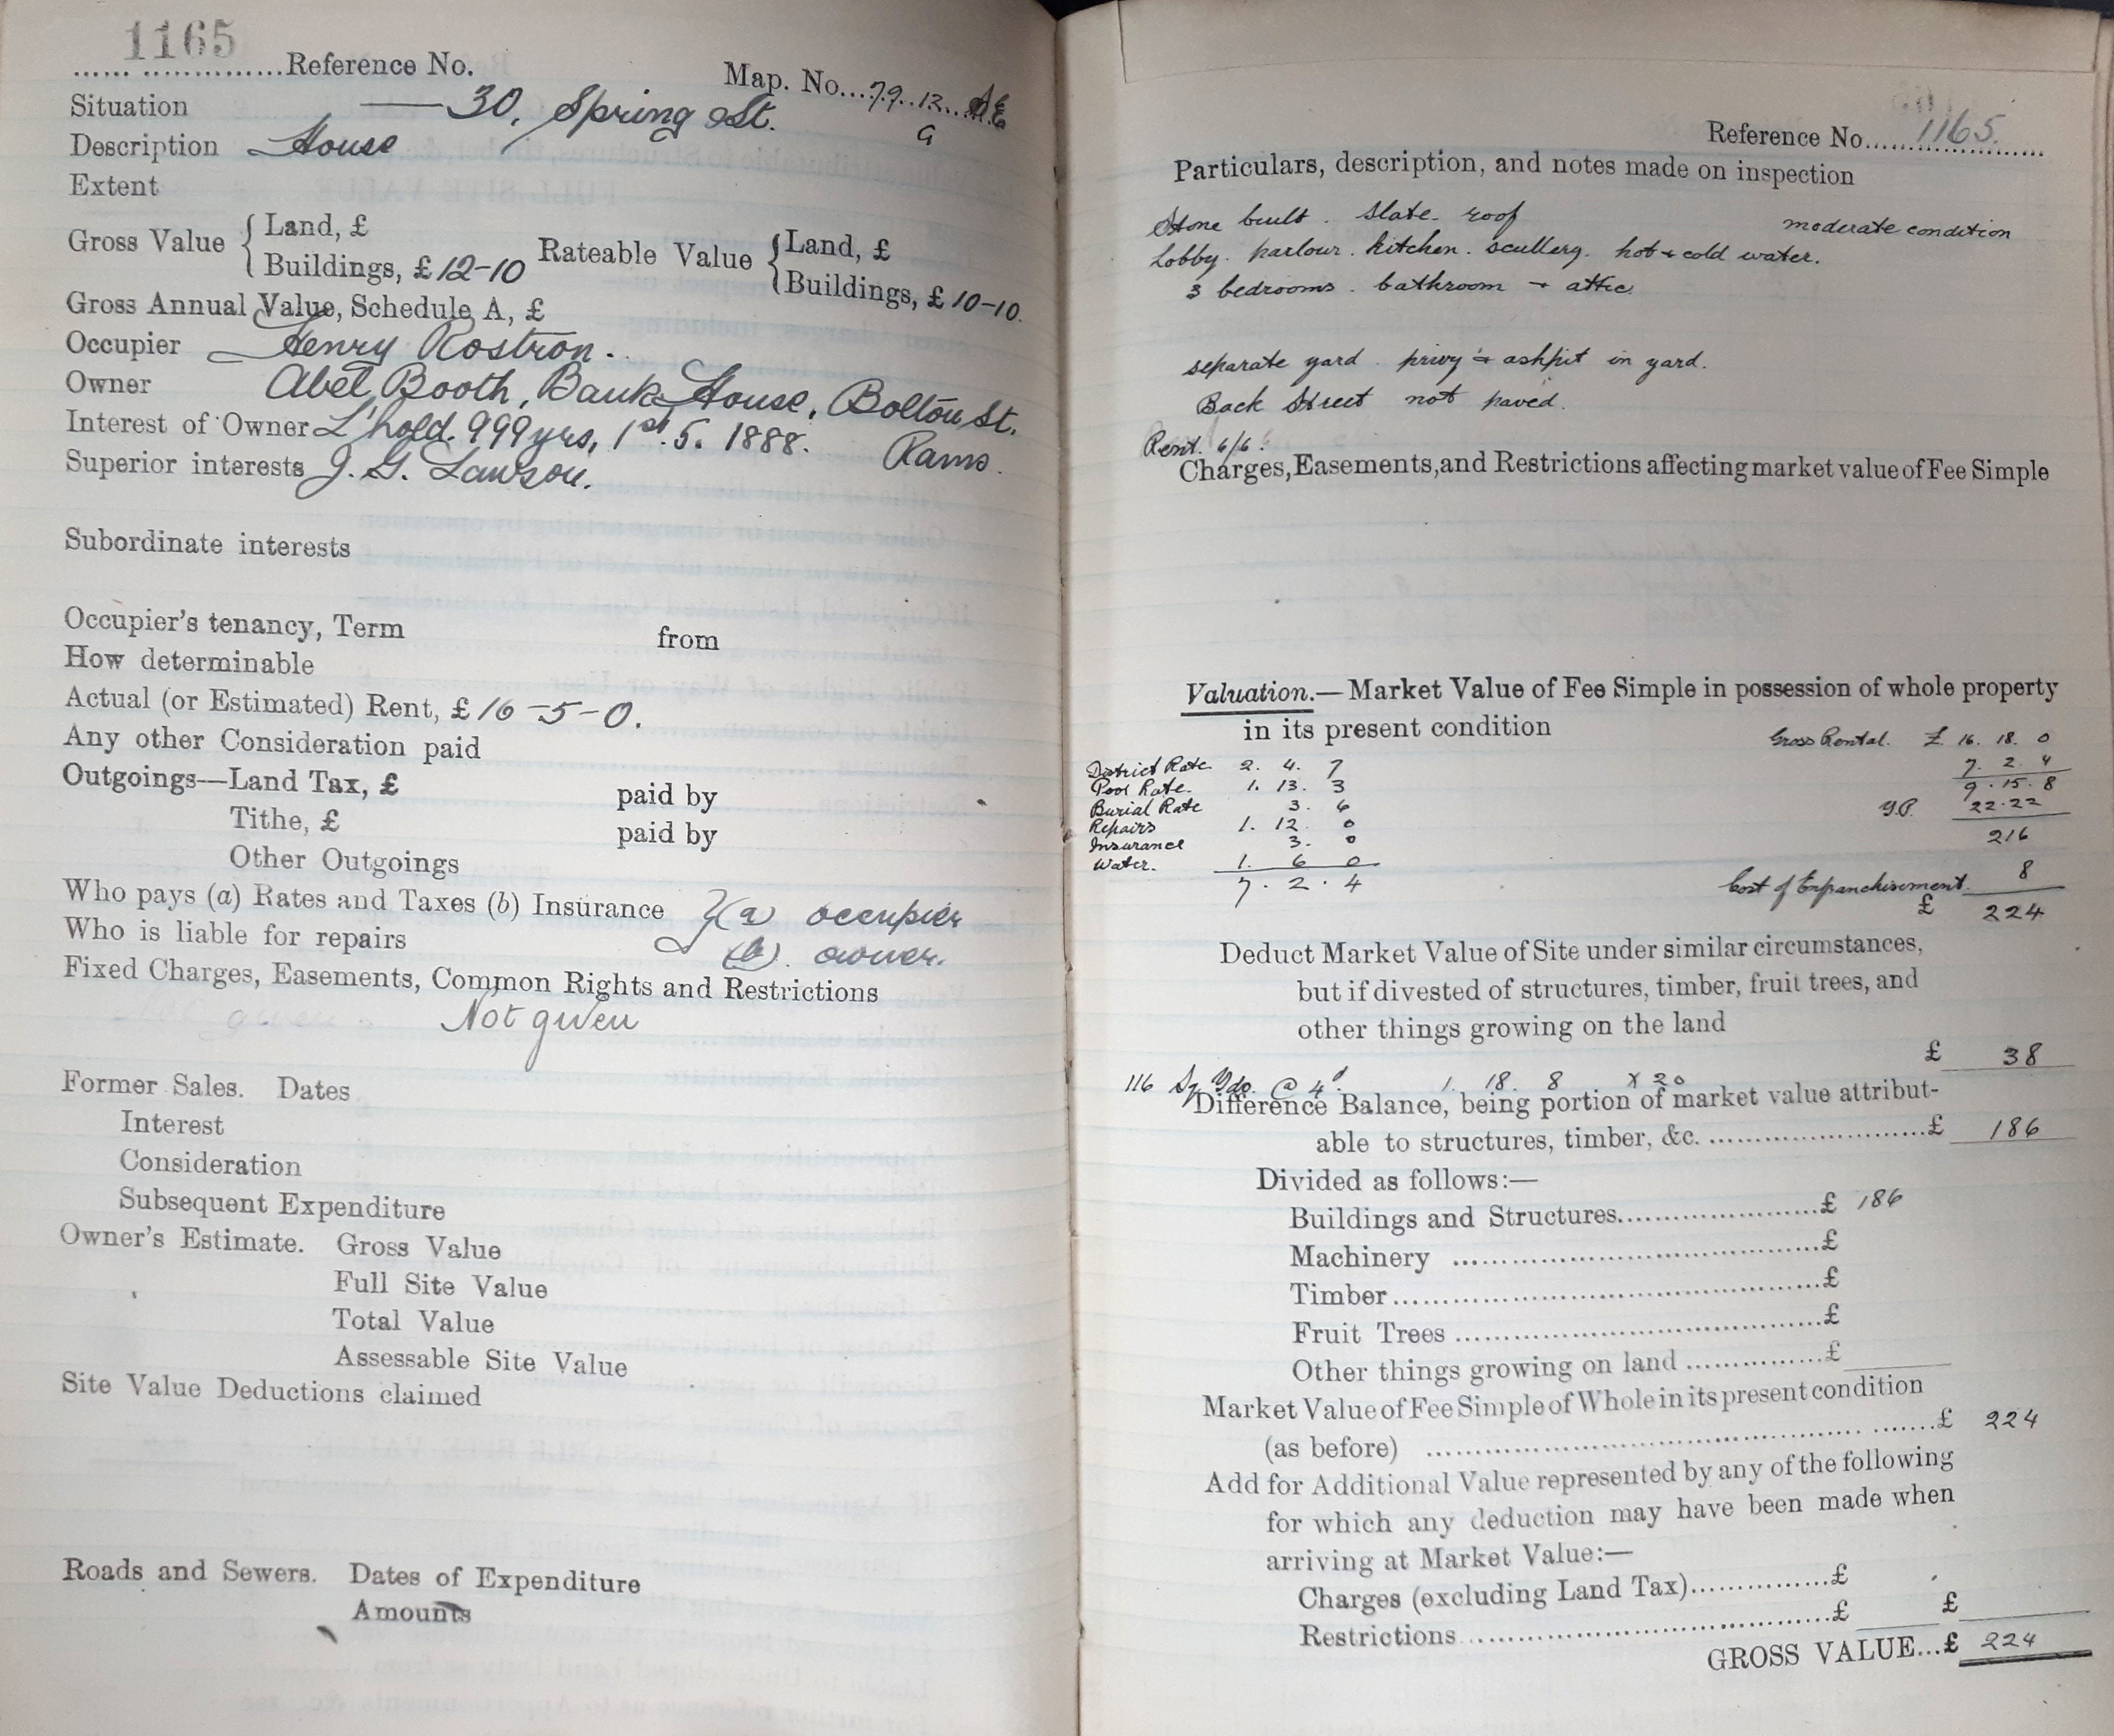 1165
...... ..............Reference No.
Map. No...79..12...
9
Situation — 30, Spring St.
Description House
Extent
Gross Value { Land, £
Buildings, £ 12-10
Rateable Value { Land, £
Buildings, £ 10-10.
Gross Annual Value, Schedule A, £
Occupier Henry Rostron.
Owner Abel Booth, Bank House, Bolton St.
Interest of Owner L'hold. 999 yrs, 1st. 5. 1888. Rams.
Superior interests J. G. Lawson.
Subordinate interests
Occupier's tenancy, Term from
How determinable
Actual (or Estimated) Rent, £ 16-5-0.
Any other Consideration paid
Outgoings—Land Tax, £ paid by
Tithe, £ paid by
Other Outgoings
Who pays (a) Rates and Taxes (b) Insurance } (a) occupier
Who is liable for repairs (b). owner.
Fixed Charges, Easements, Common Rights and Restrictions
Not given
Former Sales. Dates
Interest
Consideration
Subsequent Expenditure
Owner's Estimate. Gross Value
Full Site Value
Total Value
Assessable Site Value
Site Value Deductions claimed
Roads and Sewers. Dates of Expenditure
Amounts
Reference No. 1165.
Particulars, description, and notes made on inspection
Stone built. Slate roof moderate condition
Lobby. parlour. kitchen. scullery. hot & cold water.
3 bedrooms. bathroom + attic.
separate yard. privy & ashpit in yard.
Back Street not paved.
Rent. 6/6.
Charges, Easements, and Restrictions affecting market value of Fee Simple
Valuation.— Market Value of Fee Simple in possession of whole property
in its present condition
Gross Rental. £ 16. 18. 0
7. 2. 4
9. 15. 8
Y.P. 22.22
216
Cost of Enfranchisement. 8
£ 224
District Rate. 2. 4. 7
Poor Rate. 1. 13. 3
Burial Rate 3. 6
Repairs 1. 12. 0
Insurance 3. 0
Water. 1. 6 0
7. 2. 4
Deduct Market Value of Site under similar circumstances,
but if divested of structures, timber, fruit trees, and
other things growing on the land
£ 38
116 Sq Yds. @ 4d. 1. 18. 8 x 20
Difference Balance, being portion of market value attribut-
able to structures, timber, &c. ........................£ 186
Divided as follows:—
Buildings and Structures......................£ 186
Machinery ........................................£
Timber..............................................£
Fruit Trees .......................................£
Other things growing on land ...............£
Market Value of Fee Simple of Whole in its present condition
(as before) ........................................................£ 224
Add for Additional Value represented by any of the following
for which any deduction may have been made when
arriving at Market Value:—
Charges (excluding Land Tax)...............£
Restrictions........................................£ £
GROSS VALUE...£ 224